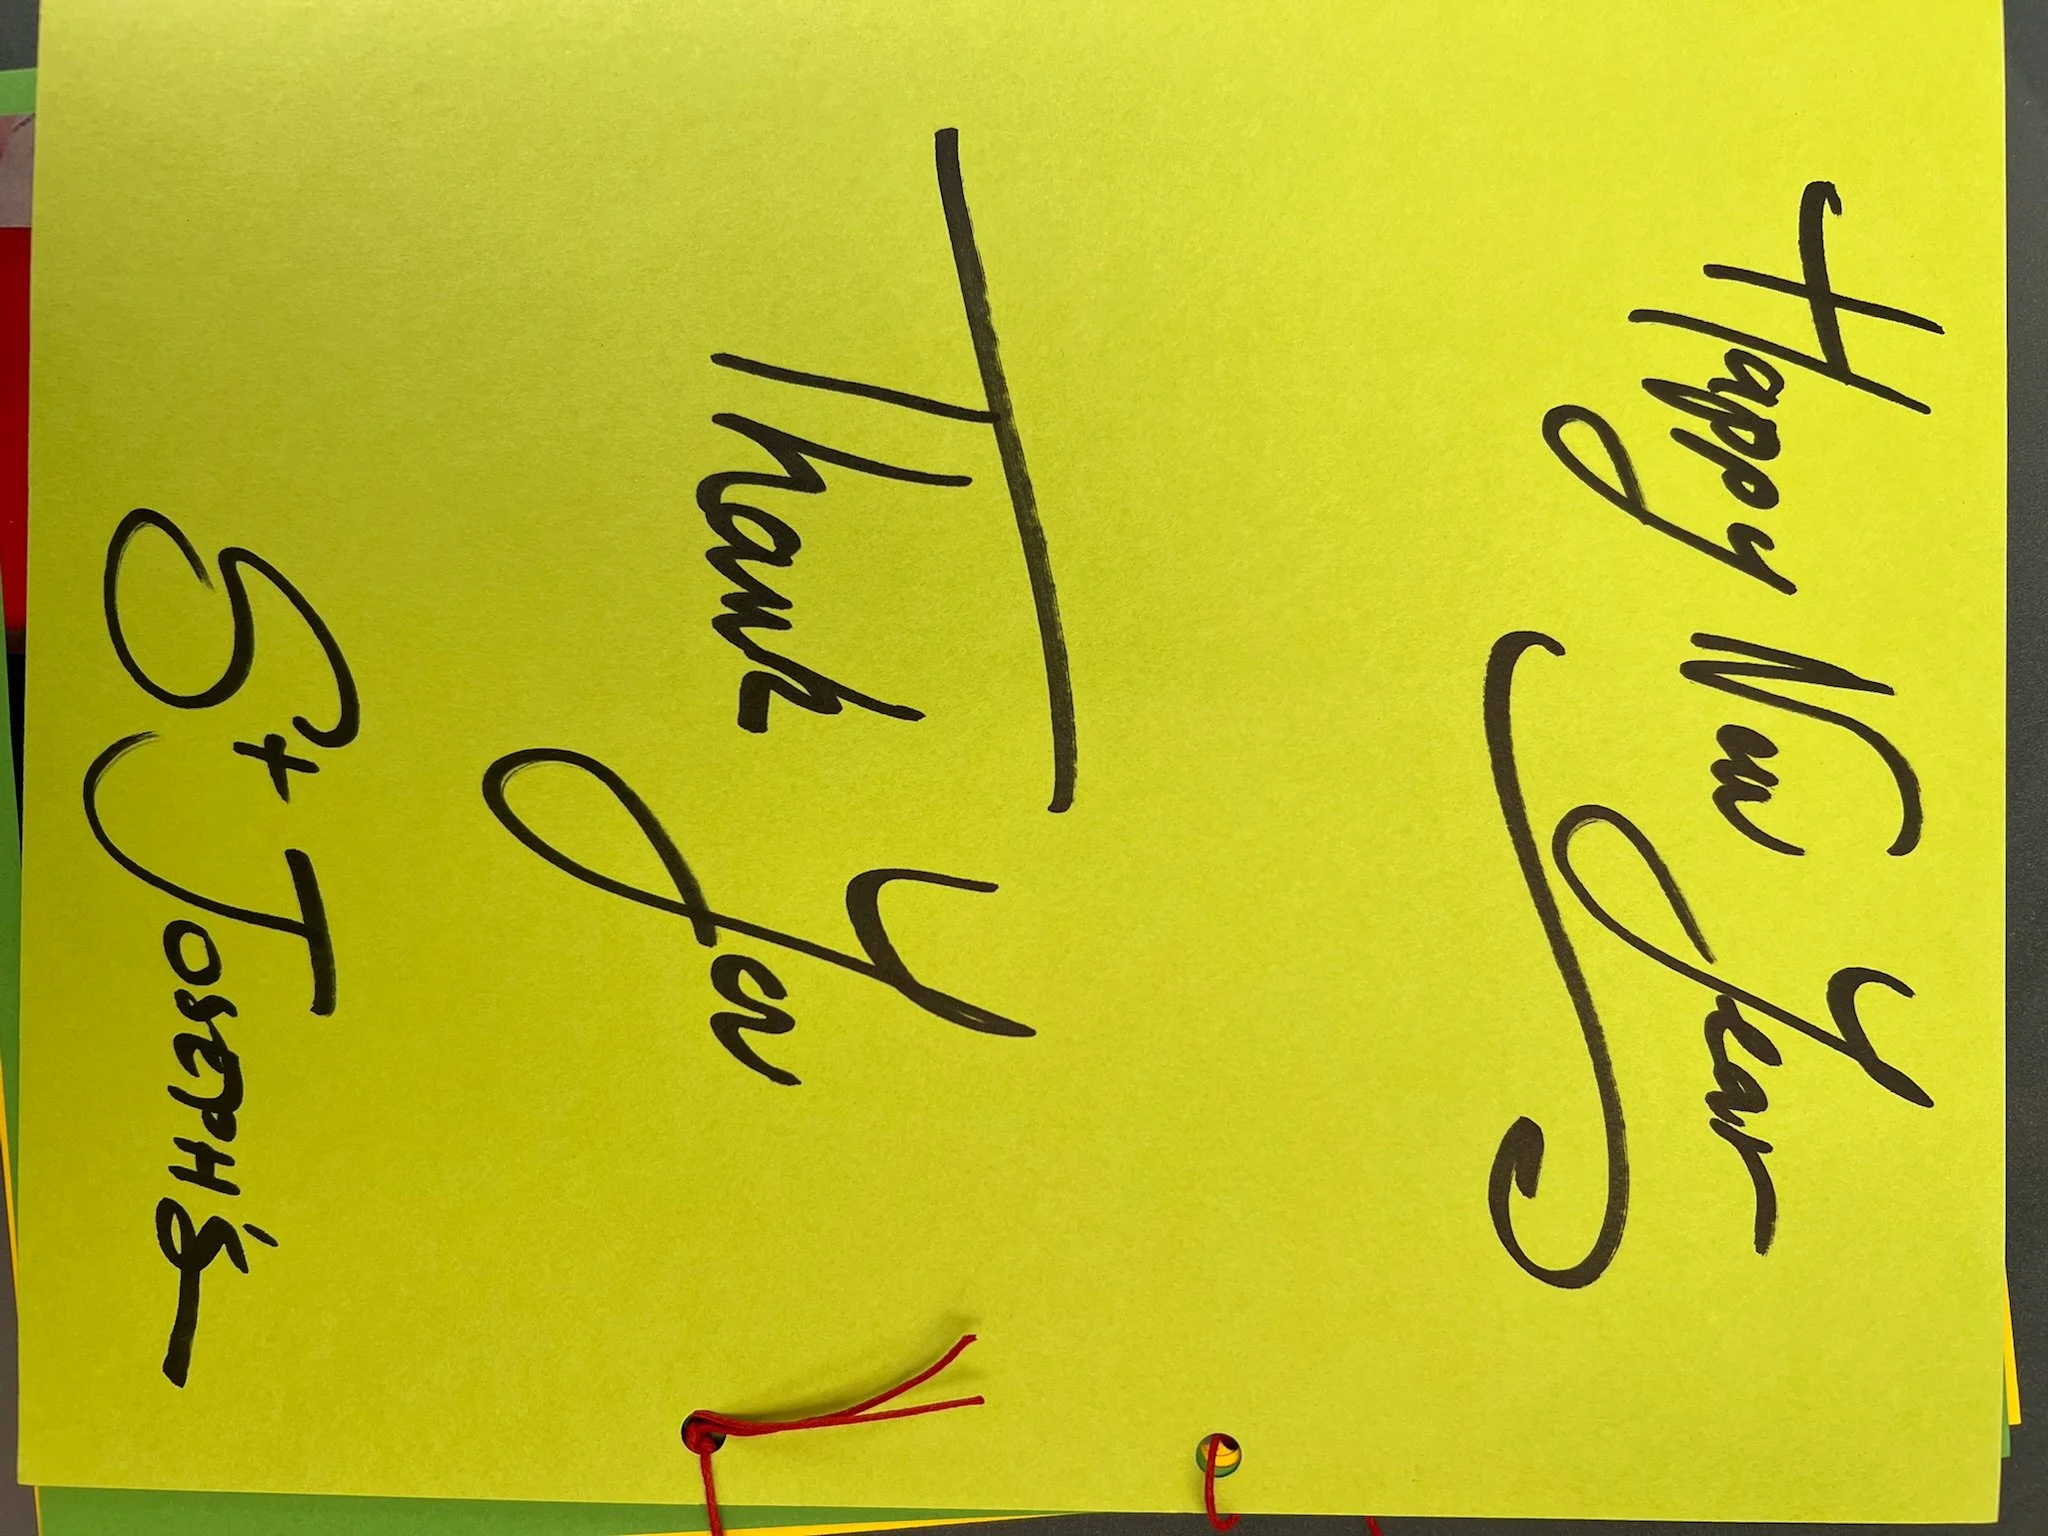 Happy New Year
Thank You
St JOSEPH'S